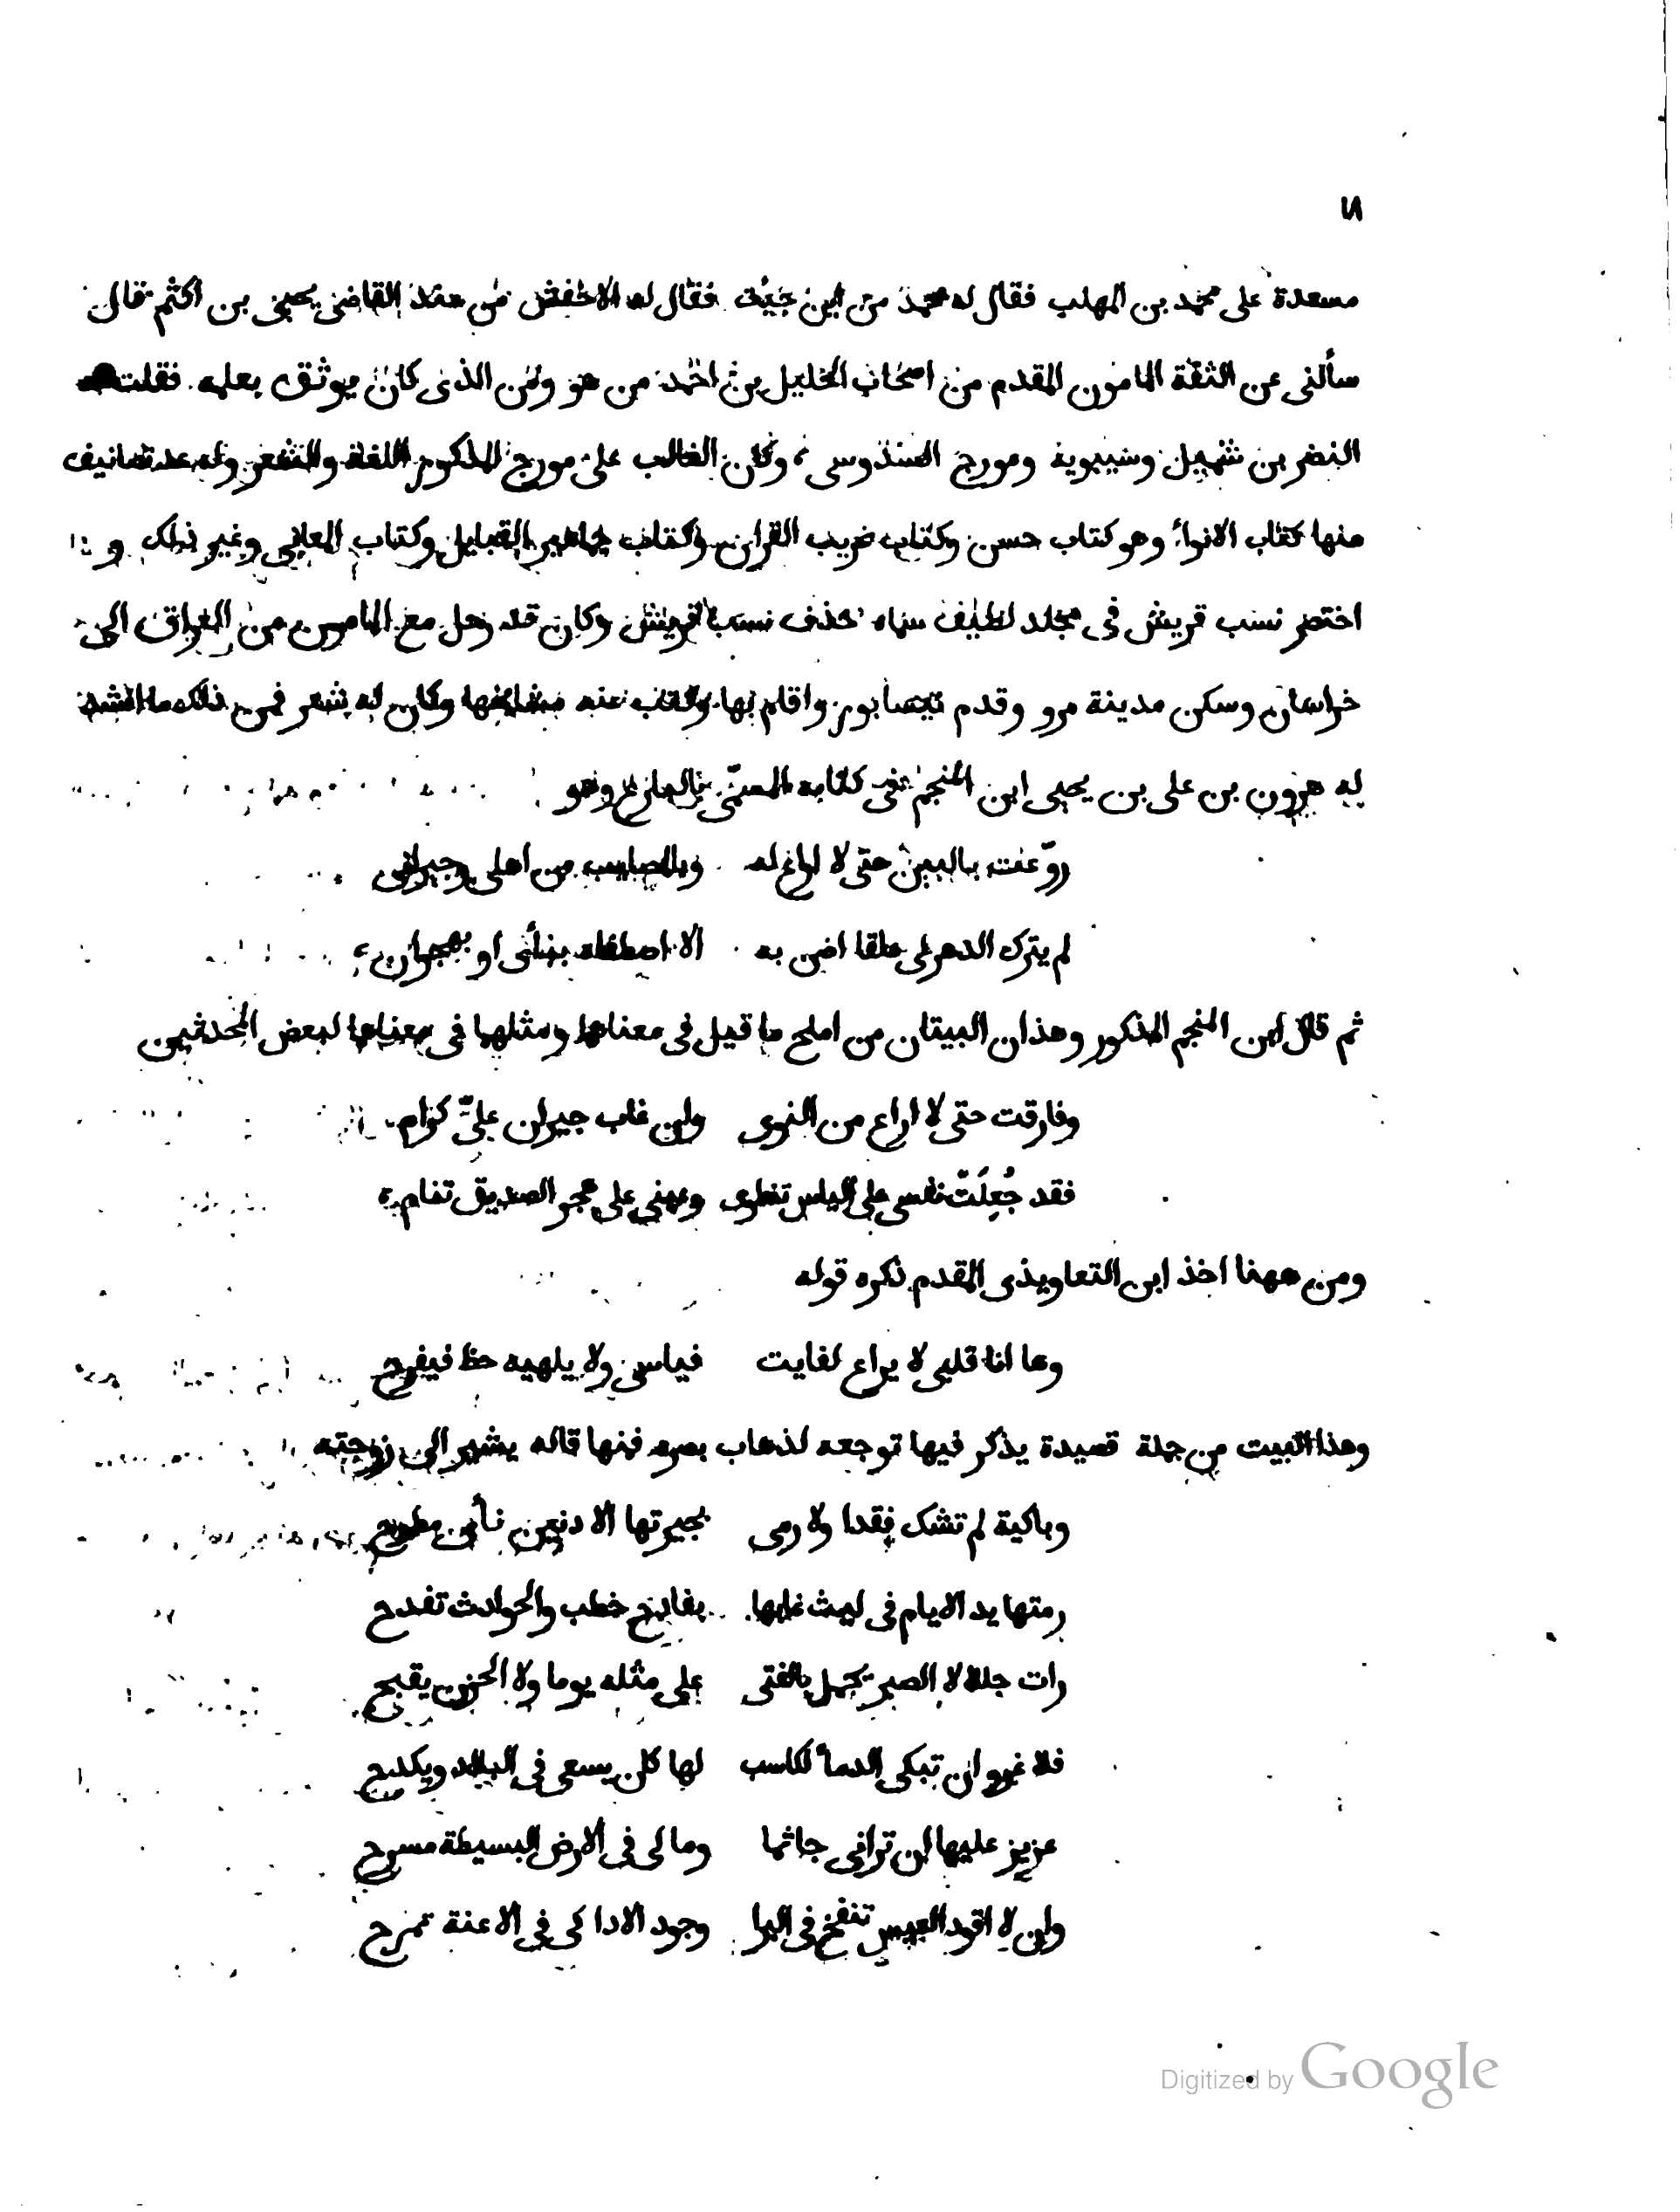 ٧١
مسعدة على محمد بن المهلب فقال له محمد من اين جيت فقال له الاخفش من عند القاضى يحيى بن اكثم قال
سألنى عن الثقة المامون المقدم من اصحاب الخليل بن احمد من هو ومن الذى كان يوثق بعلمه فقلت
النضر بن شميل وسيبويه ومورج السدوسى وكان الغالب على مورج المذكور اللغة والشعر وله عدة تصانيف
منها كتاب الانواء وهو كتاب حسن وكتاب غريب القران وكتاب جماهير القبايل وكتاب المعانى وغير ذلك و
اختصر نسب قريش فى مجلد لطيف سماه حذف نسب قريش وكان قد رحل مع المامون من العراق الى
خراسان وسكن مدينة مرو وقدم نيسابور واقام بها وكتب عنه مشايخها وكان له شعر فمن ذلك ما انشد
له هرون بن على بن يحيى ابن المنجم فى كتابه المسمّى بالبارع وهو
روّعت بالبين حتى لا اراع له وبالمصايب من اهلى وجيرانى
لم يترك الدهر لى علقا اضن به الا اصطفاه بنأى او بهجران
ثم قال ابن المنجم المذكور وهذان البيتان من املح ما قيل فى معناها ومثلها فى معناها لبعض المحدثين
وفارقت حتى لا اراع من النوى وان غاب جيران علىّ كرام
فقد جُعِلَتْ نفسى على الياس تنطوى وعينى على هجر الصديق تنام
ومن ههنا اخذ ابن التعاويذى المقدم ذكره قوله
وها انا قلبى لا يراع لفايت فياسى ولا يلهيه حظ فيفرح
وهذا البيت من جملة قصيدة يذكر فيها توجعه لذهاب بصره فمنها قاله يشير الى زوجته
وباكية لم تشك فقدا ولا رمى بجيرتها الادنين نأى مطوح
رمتها يد الايام فى ليث غابها بفادح خطب والحوادث تفدح
رات جللا لا الصبر يجمل بالفتى على مثله يوما ولا الحزن يقبح
فلا غرو ان تبكى الدماء لكاسب لها كان يسعى فى البلاد ويكدح
عزيز عليها ان ترانى جاثما وما لى فى الارض البسيطة مسرح
وان لا اقود العيس تنفخ فى البرا وجرد الاداكى فى الاعنة تمرح
Digitized by Google